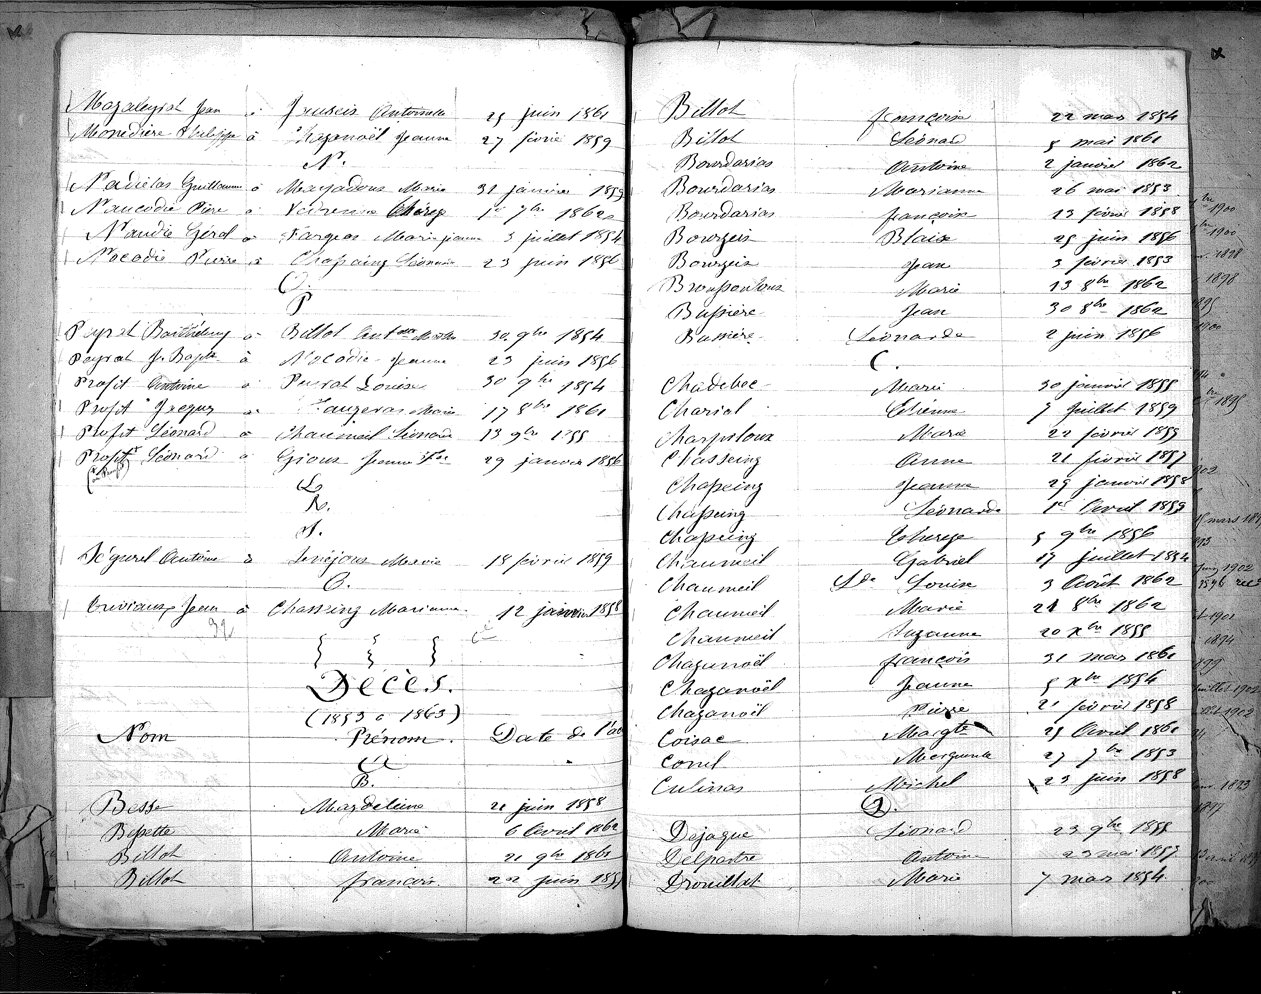 Mazaleyrat Jean à Antoinette 25 juin 1861
Monédière Philippe à Chezanoël Jeanne 27 février 1859
N.
Guillaume à Magadoux Marie 31 janvier 1859
Naucodie Pierre à Vedrenne Thérèse 1er 7bre 1862
Naudie Géral à Fargeas Marie jeanne 3 juillet 1854
Nocodie Pierre à Chapaing Léonarde 23 juin 1856
O.
P
Peyrat Barthélemy à Billot 30 9bre 1854
Peyrat J. Bapte à Nocodie Jeanne 23 juin 1856
Profit Antoine à Peyrat Louise 30 9bre 1854
Profit Jacques à Marie 17 8bre 1861
Profit Léonard à Chaumeil Léonarde 13 9bre 1855
Profit Léonard à Gioux Jeanne 29 janvier 1856
Q
R.
S.
Ségurel Antoine à Marie 18 février 1859
C.
Jean à Chasseing Marianne 12 janvier 1858
Décès.
(1853 à 1863)
Nom Prénom. Date de l'ac
A
B.
Besse Magdeleine 21 juin 1858
Bessette Marie 6 Avril 1862
Billot Antoine 21 9bre 1861
Billot françois 22 juin 1855
Billot françoise 22 mars 1854
Billot Léonard 5 mai 1861
Bourdarias Antoine 2 janvier 1862
Bourdarias Marianne 26 mai 1853
Bourdarias françoise 13 février 1858
Bourgeix Blaise 25 juin 1856
Bourgeix Jean 3 février 1853
Broussouloux Marie 13 8bre 1862
Bussière Jean 30 8bre 1862
Bussière Léonarde 2 juin 1856
C.
Chadebec Marie 30 janvier 1855
Chariol Etienne 7 Juillet 1859
Charpiloux Marie 22 février 1855
Chasseing Anne 21 février 1857
Chasseing Jeanne 29 janvier 1858
Chasseing Léonarde 1er Avril 1859
Chasseing Thérèse 5 9bre 1856
Chaumeil Gabriel 17 juillet 1854
Chaumeil Lde Louise 3 Août 1862
Chaumeil Marie 21 8bre 1862
Chaumeil Suzanne 20 Xbre 1855
Chazanoël françois 31 mars 1861
Chazanoël Jeanne 5 Xbre 1854
Chazanoël Pierre 21 février 1858
Coissac Margte 25 Avril 1861
Cornil Marguerite 27 7bre 1853
Culinas Michel 23 juin 1858
D.
Dejaque Léonard 23 9bre 1855
Delpastre Antoine 23 mai 1857
Drouillat Marie 7 mars 1854